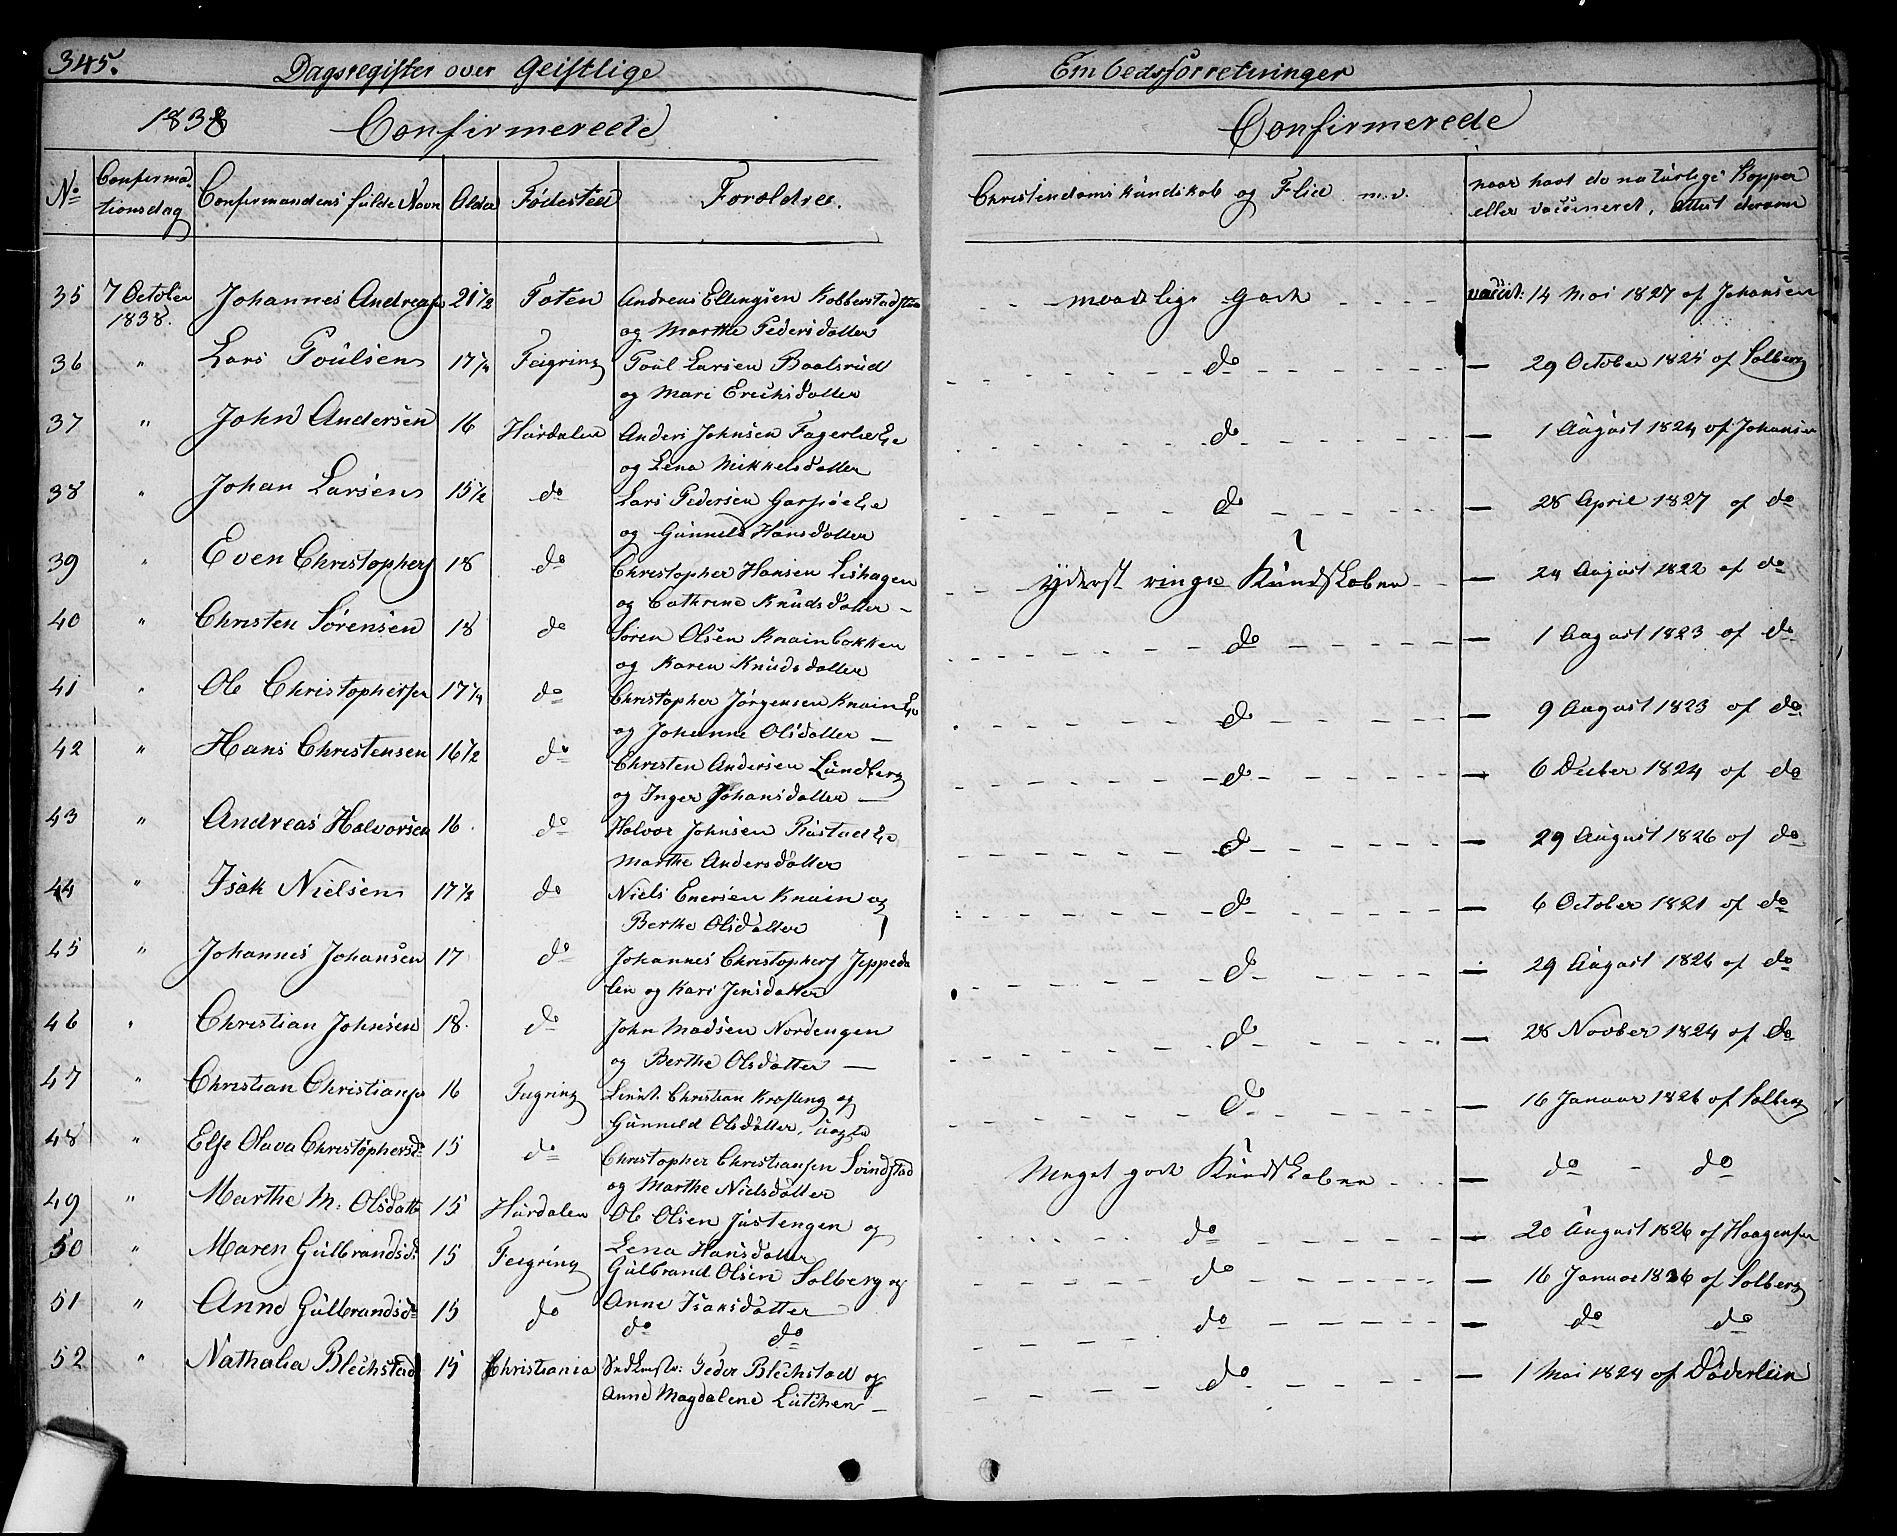 345. Dagsregister over Geistlige Embedsforretninger
1838 Confirmerede Confirmerede
No Confirmationsdag Confirmandens fulde Navn Alder Fødested Forældre. Christendomskundskab og Flid m.v. naar havt de naturlige Kopper
eller vaccineret, Attest derom
35 7 October Johannes Andreas 21 1/2 Toten Andreas Ellingsen Kobberstad maadelige Godt vaccit: 14 Mai 1827 af Johansen
1838. og Marthe Pedersdatter
36 " Lars Poulsen 17 1/4 Feigring Poul Larsen Baalsrud do — 29 October 1825 af Solberg
og Mari Erichsdatter
37 " John Andersen 16 Hurdalen Anders Johnsen Fagerli do — 1 August 1824 af Johansen
og Lena Mikkelsdatter
38 " Johan Larsen 15 1/2 do Lars Pedersen do — 28 April 1827 af do
og Gunneld Hansdatter
39 " Even Christophers 18 do Christopher Hansen Lishagen yderst ringe Kundskaber — 24 August 1822 af do
og Cathrine Knudsdatter —
40 " Christen Sørensen 18 do Søren Olsen Knainbakken do — 1 August 1823 af do
og Karen Knudsdatter
41 " Ole Christophersen 17 1/4 do Christopher Jørgensen Knain do — 9 August 1823 af do
og Johanne Olsdatter —
42 " Hans Christensen 16 1/2 do Christen Andersen Lundberg do — 6 Decber 1824 af do
og Inger Johansdatter —
43 " Andreas Halvorsen 16 do Halvor Johnsen Rustad do — 29 August 1826 af do
Marthe Andersdatter
44 " Isak Nielsen 17 1/2 do Niels Enersen Knain og do — 6 October 1821 af do
Berthe Olsdatter
45 " Johannes Johansen 17 do Johannes Christophers Jeppeda do — 29 August 1826 af do
len og Kari Jensdatter
46 " Christian Johnsen 18. do John Madsen Nordengen do — 28 Novber 1824 af do
og Berthe Olsdatter —
47 " Christian Christians 16 Feigring Christian Krefting og do — 16 Januar 1826 af Solberg
Gunneld Olsdatter, uægte
48 " Else Olava Christophersd 15 do Christopher Christiansen Svindstad Meget godt Kundskaber — do - do
og Marthe Nielsdatter
49 " Marthe M: Olsdatt 15 Hurdalen Ole Olsen Justengen og do — 20 August 1826 af Haagensen
Lena Hansdatter
50 " Maren Gulbrandsd: 15 Feigring Gulbrand Olsen Solberg og do — 16 Januar 1826 af Solberg
Anne Isaksdatter
51 " Anne Gulbrandsd 15 do do do do — do do
52 " Nathalia Blechstad 15 Christiania Peder Blechstad og do — 1 Mai 1824 af Døderlein
Anne Magdalene Lütchen —